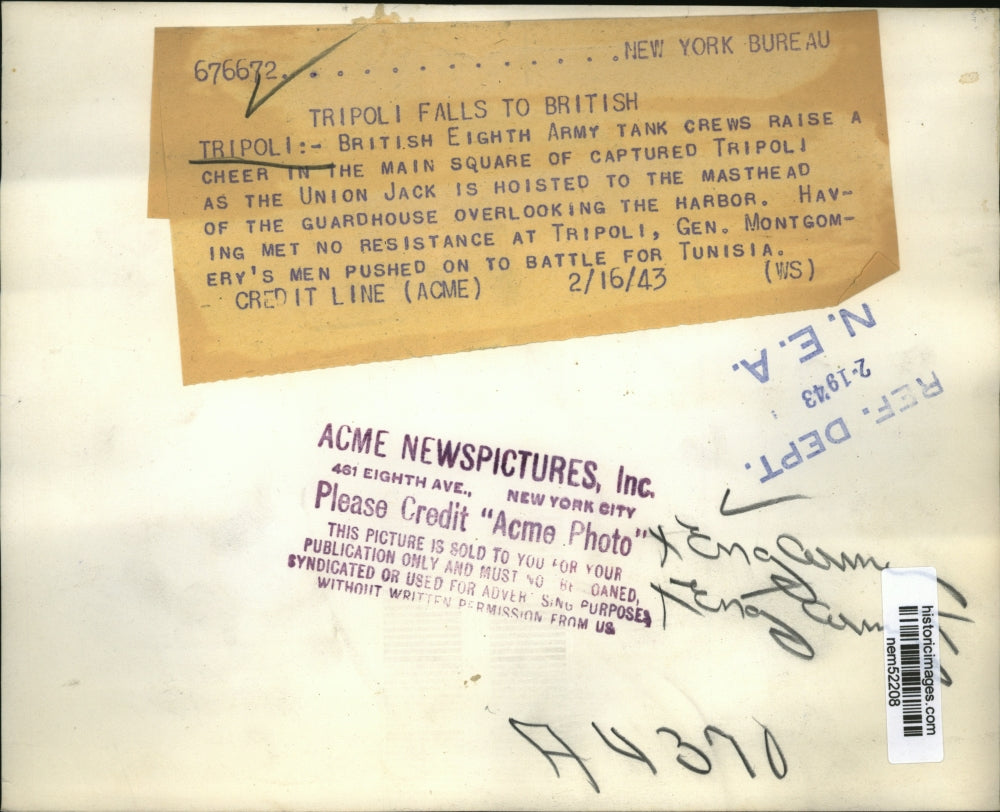 676672. . . . . . . . . . . . . .NEW YORK BUREAU
TRIPOLI FALLS TO BRITISH
TRIPOLI:- BRITISH EIGHTH ARMY TANK CREWS RAISE A
CHEER IN THE MAIN SQUARE OF CAPTURED TRIPOLI
AS THE UNION JACK IS HOISTED TO THE MASTHEAD
OF THE GUARDHOUSE OVERLOOKING THE HARBOR. HAV-
ING MET NO RESISTANCE AT TRIPOLI, GEN. MONTGOM-
ERY'S MEN PUSHED ON TO BATTLE FOR TUNISIA.
- CREDIT LINE (ACME) 2/16/43 (WS)
N. E. A.
2-19'43
REF. DEPT.
ACME NEWSPICTURES, Inc.
461 EIGHTH AVE., NEW YORK CITY
Please Credit "Acme Photo"
THIS PICTURE IS SOLD TO YOU FOR YOUR
PUBLICATION ONLY AND MUST NO BE OANED,
SYNDICATED OR USED FOR ADVER SING PURPOSES
WITHOUT WRITTEN PERMISSION FROM US
x Eng
x Eng
historicimages.com
nem52208
A4370